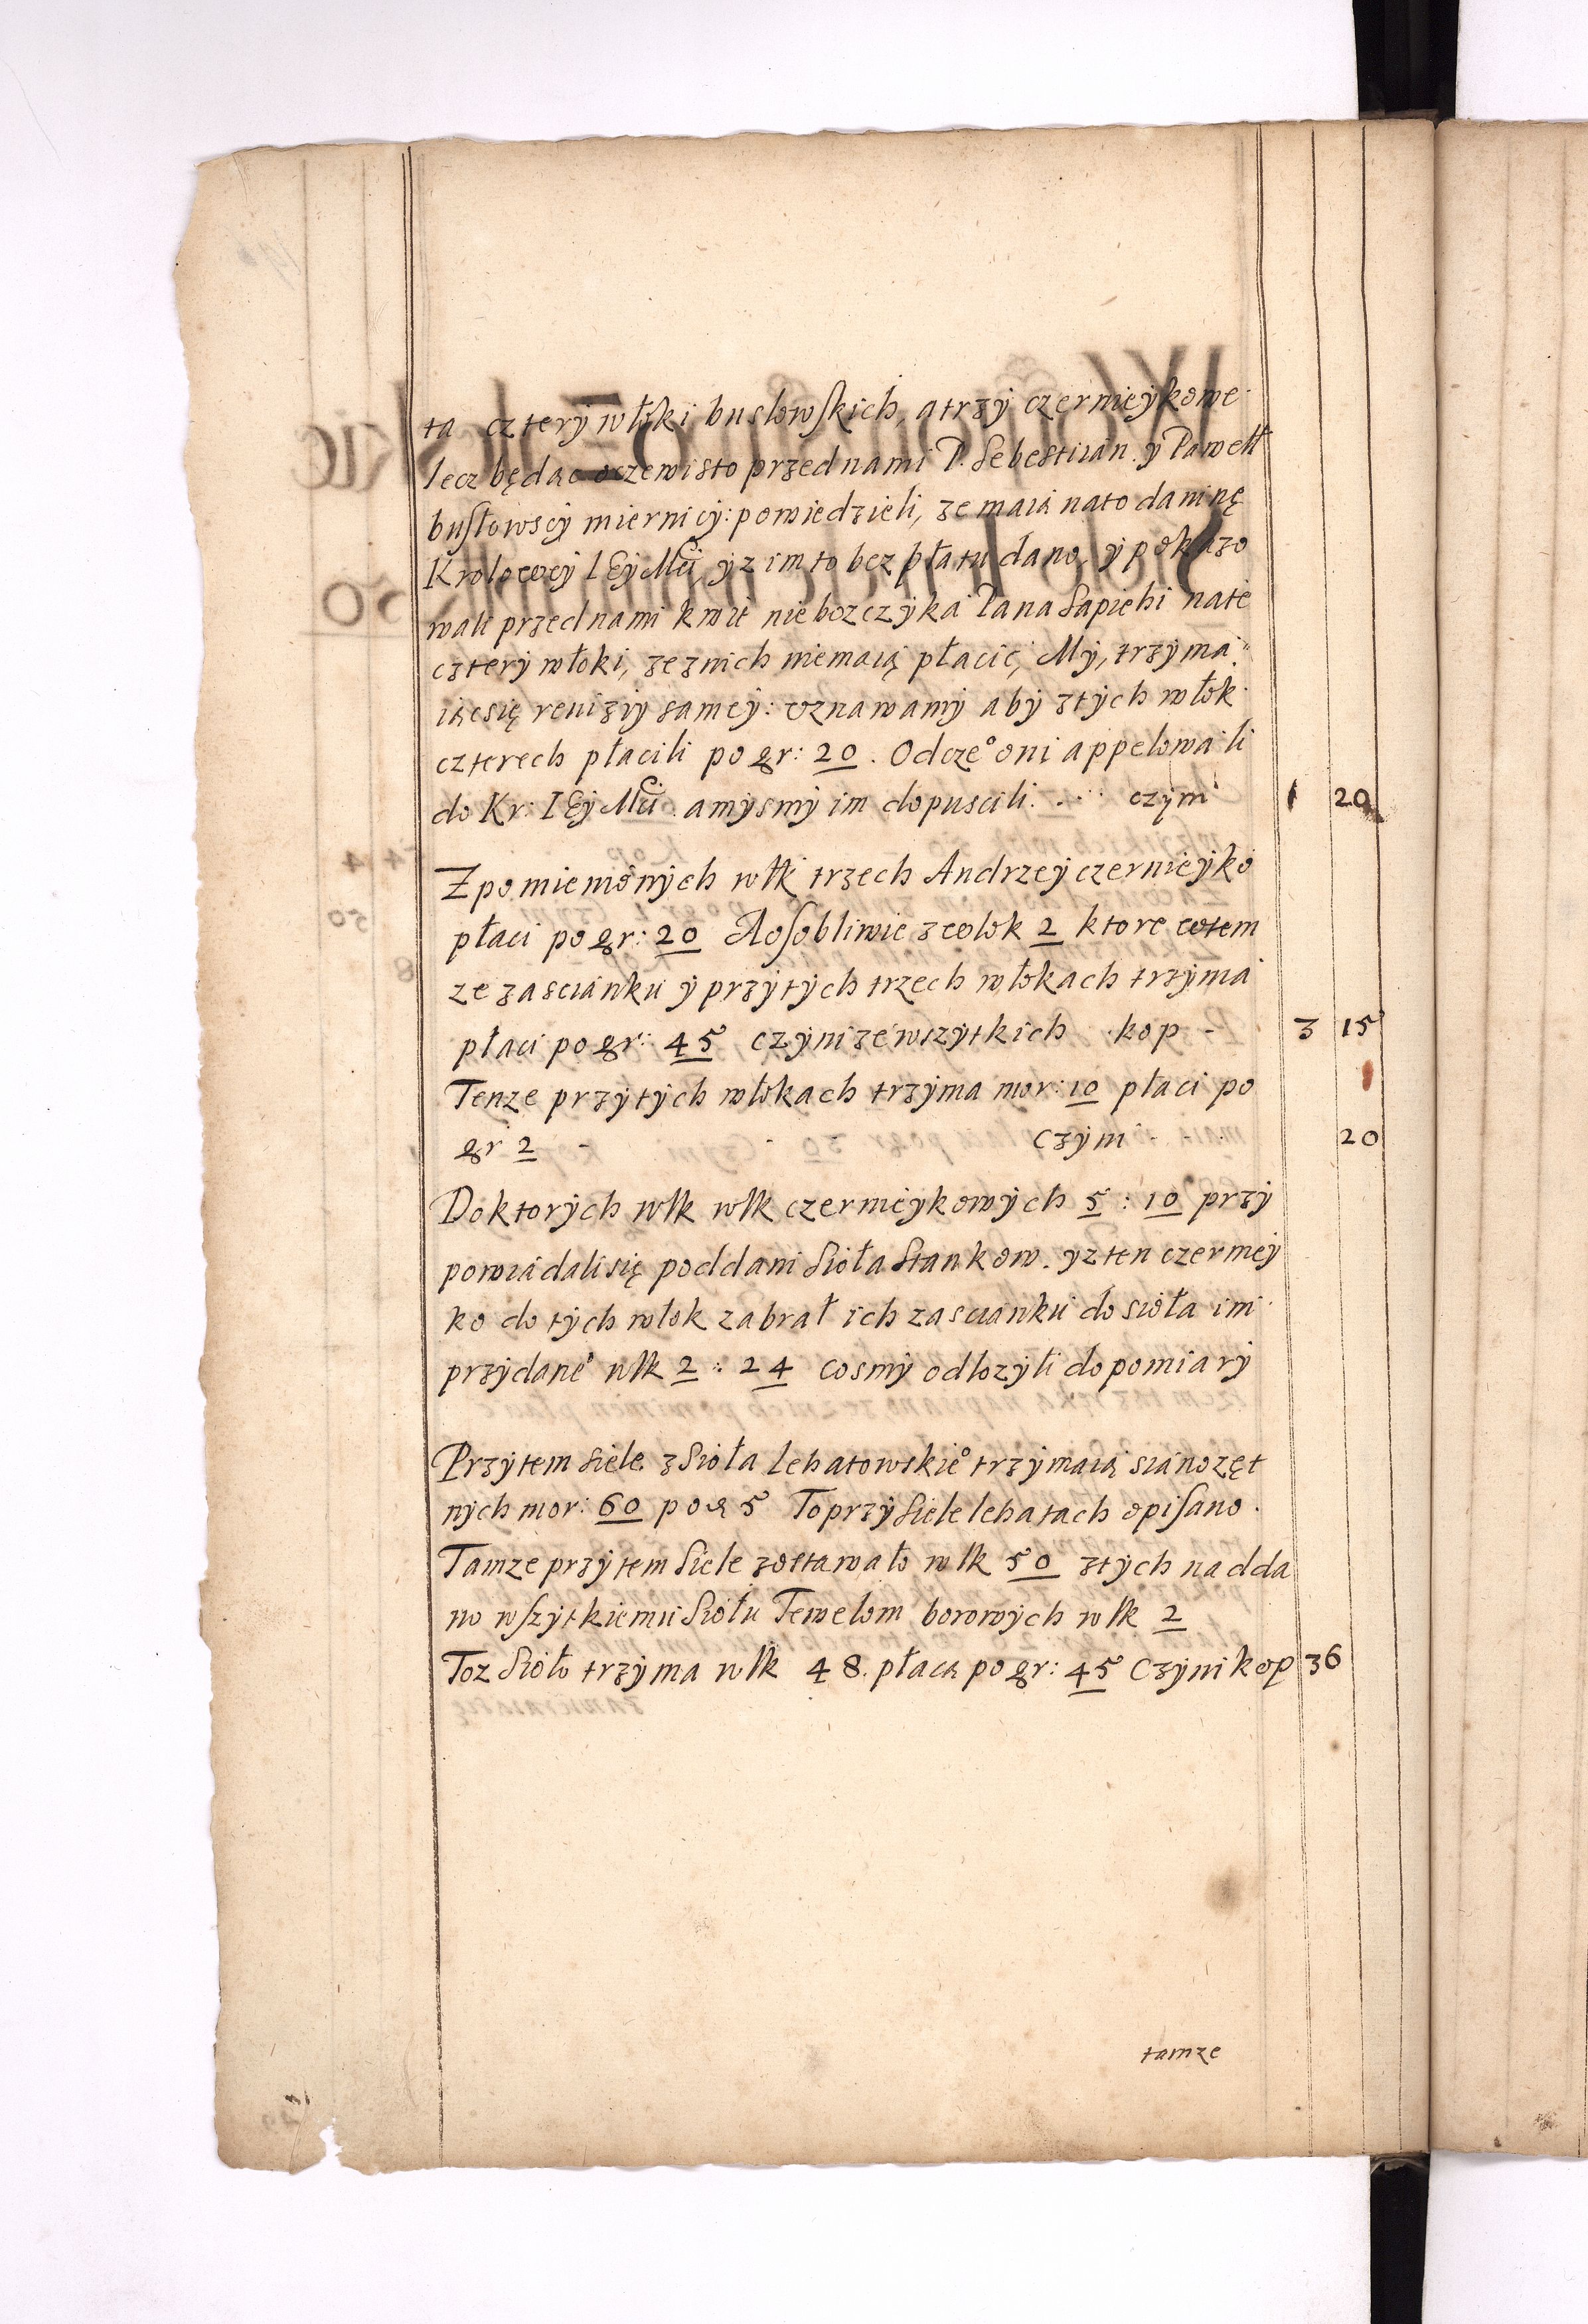 ta cztery włoki buslowskich, a trzy czernieykowe
lecz będąc oczewisto przed nami P. Sebestian. y Pawełł
busłowscy miernicy: powiedzieli, ze maią nato daninę
Krolowey IEy Mci, yz im to bez płatu dano, y pokazo
wali przed nami kwit nieboszczyka Pana Sapiehi na te
cztery włoki, ze znich niemaią płacić, My, trzyma
iąc się reuiziy samey: vznawamy aby z tych włok
czterech płacili po gr: 20. Odcze° oni appelowali
do Kr: IEy Mci amysmy im dopuscili. czyni 1 20
Z pomienionych włk trzech Andrzey czernieyko
płaci po gr: 20 A osobliwie z wolok 2 ktore wtem
ze zascianku y przytych trzech włokach trzyma
płaci po gr: 45 czyni ze wszytkich kop - 3 15
Tenze przytych włokach trzyma mor: 10 płaci po
gr 2 Czyni 20
Do ktorych wlk wlk czernieykowych 5 : 10 przy
powiadali się poddani Sioła Stankow. yz ten czerniey
ko do tych włok zabrał ich zascianku do sioła im
przydane° wlk 2 : 24 cosmy odlozyli do pomiary
Przytem Siele z Sioła Lehatowskie° trzymaią sianozęt
nych mor: 60 po g 5 To przy Siele lehatach opisano.
Tamze przytem Siele zostawało wlk 50 z tych nadda
no wszytkiemu Siołu Tewelom borowych wlk 2
Toz Sioło trzyma wlk 48. płacą po gr: 45 Czyni kop 36
tamze